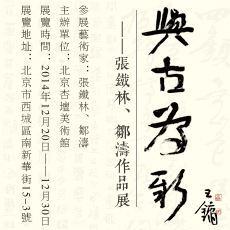 與古為新
王鏞
——張鐵林、鄒濤作品展
參展藝術家：張鐵林、鄒濤
主辦單位：北京杏壇美術館
展覽時間：2014年12月20日——12月30日
展覽地址：北京市西城區南新華街15-3號